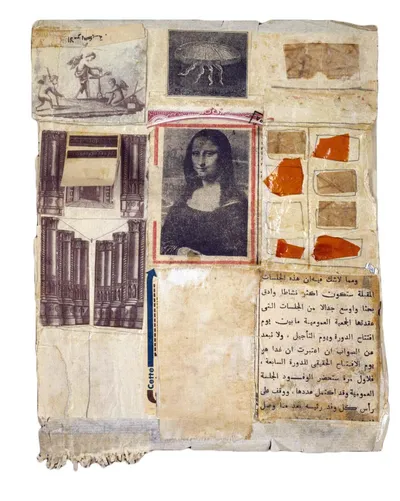 ومما لاشك فيه ان هذه الجلسات
المقبلة ستكون اكثر نشاطا وادق
بحثا واوسع جدالا من الجلسات التى
عقدتها الجمعية العمومية مابين يوم
افتتاح الدورة ويوم التأجيل ، ولا نبعد
عن الصواب ان اعتبرت ان غدا هو
يوم الافتتاح الحقيقى للدورة السابعة ،
فلاول مرة ستحضر الوفود الجلسة
العمومية وقد اكتمل عددها ، ووقف على
رأس كل وفد رئيسه بعد
Cette